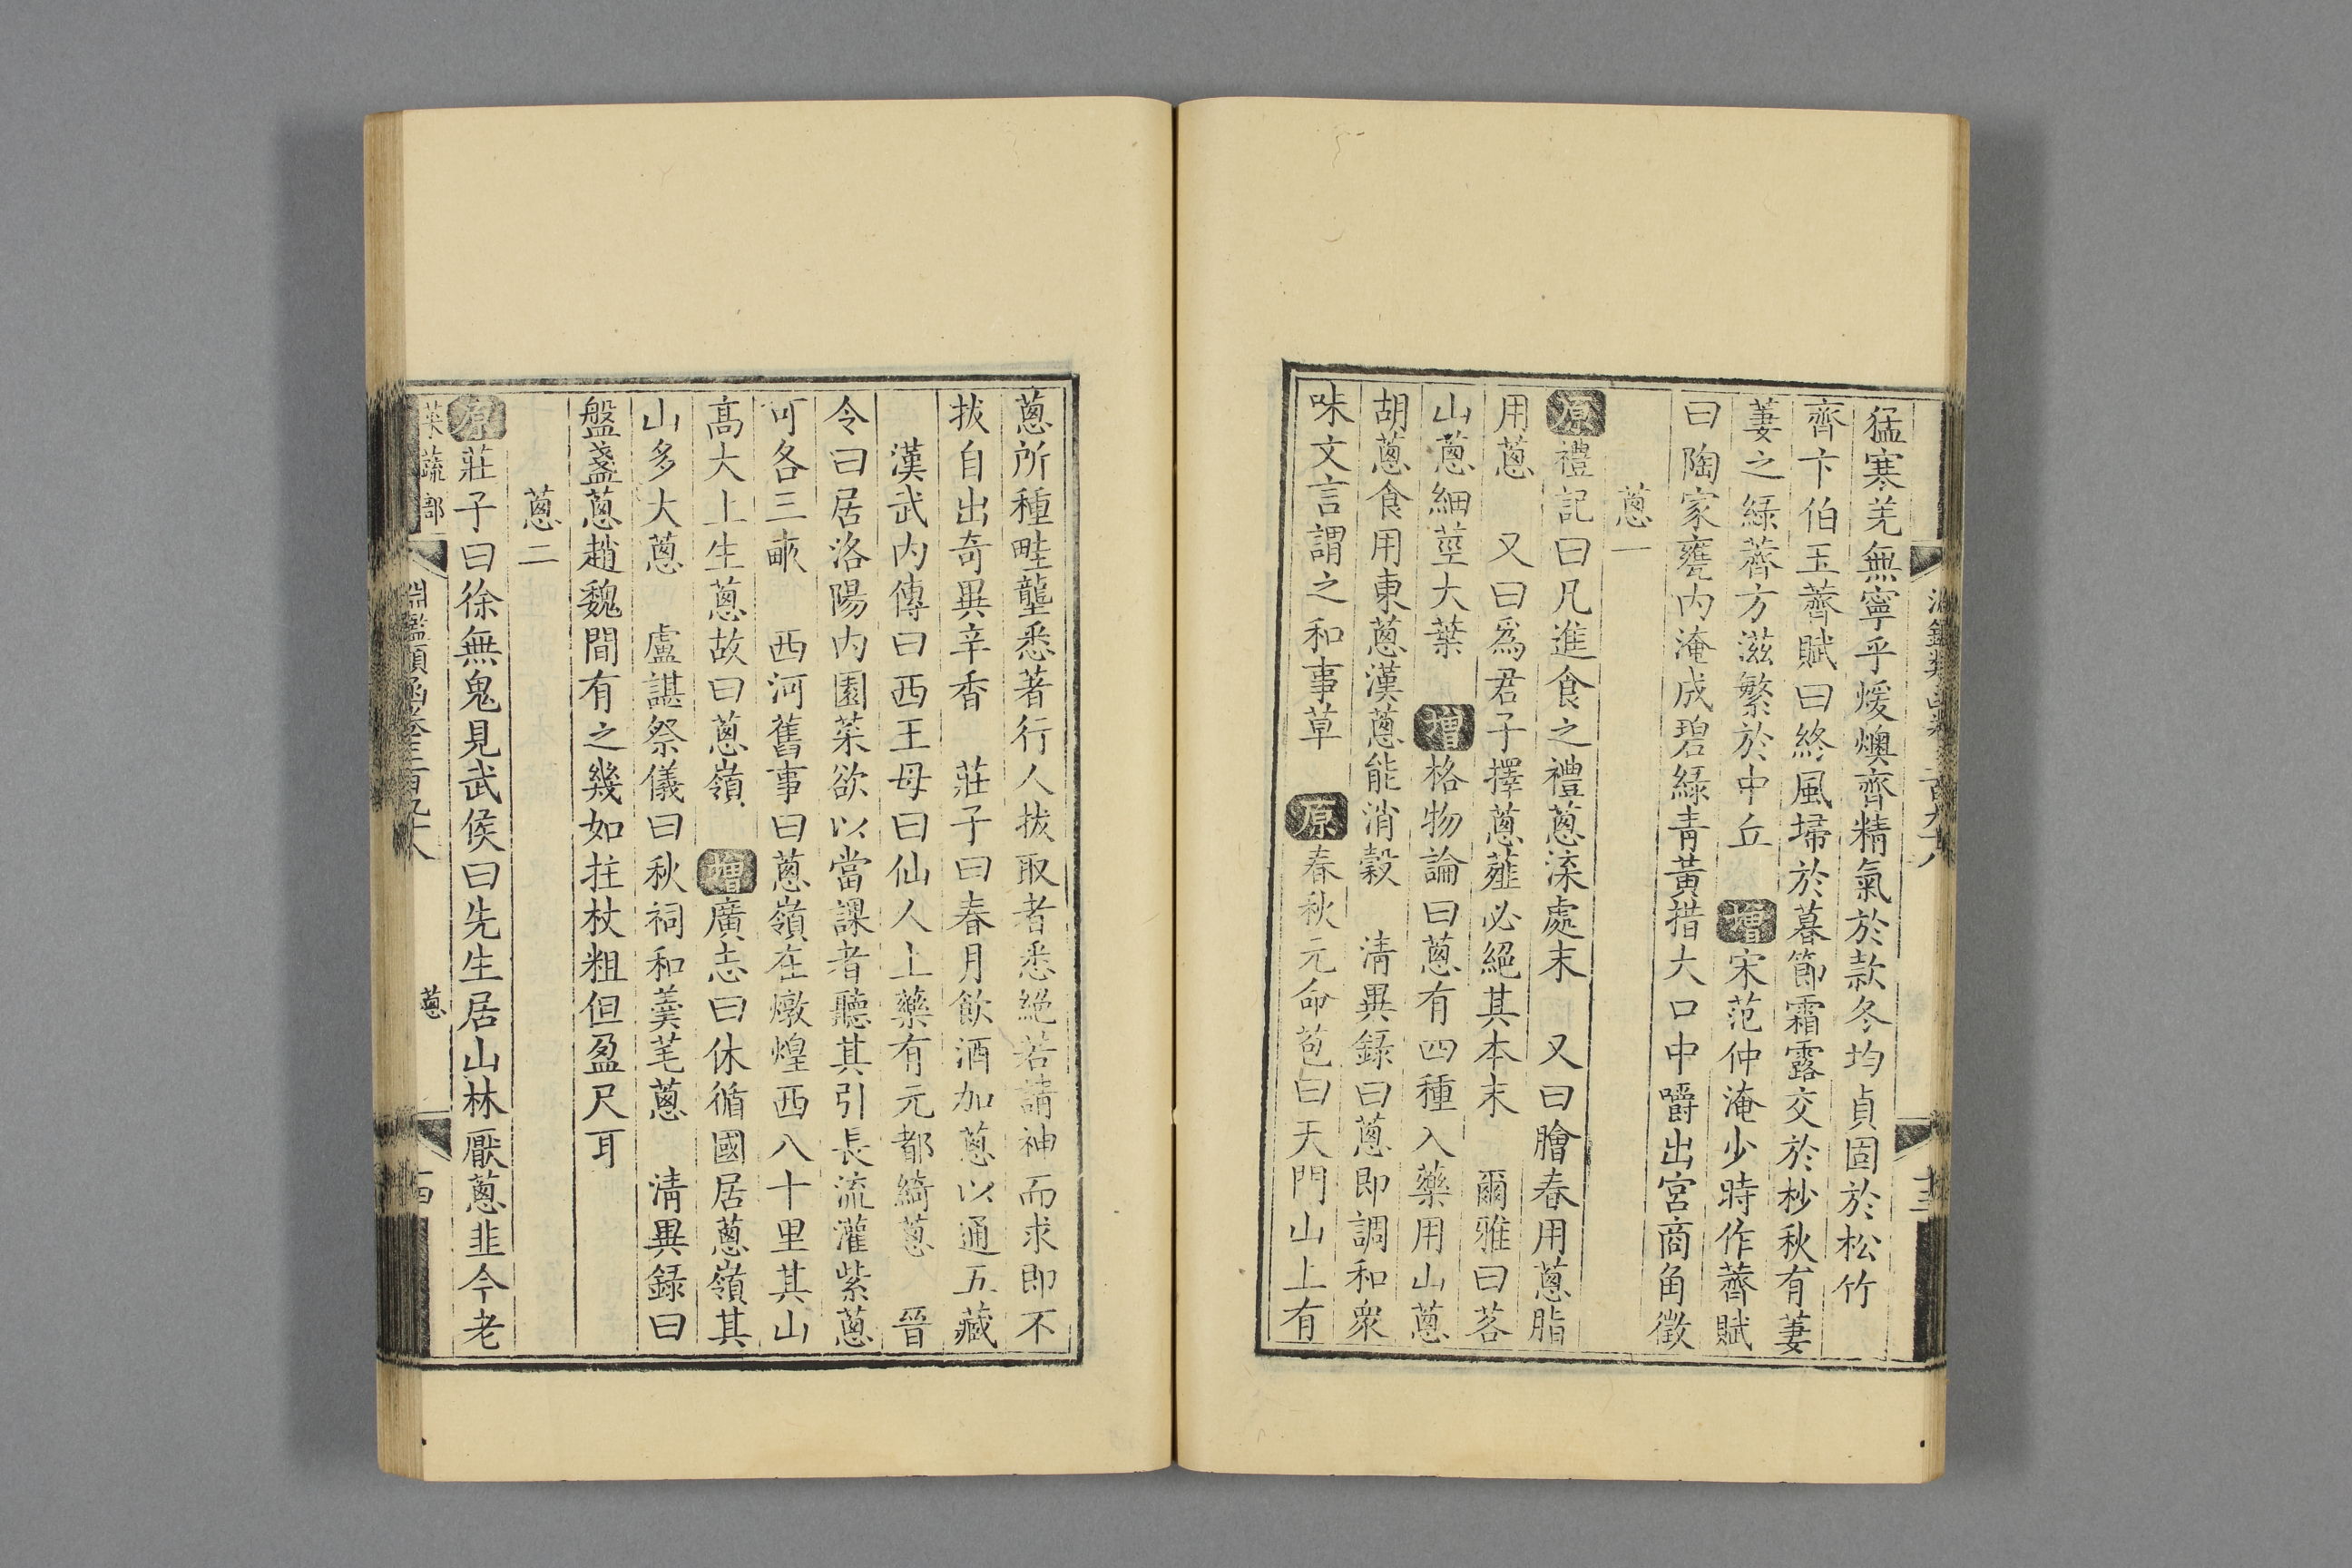 猛寒羌無寧乎煖燠齊精氣於款冬均貞固於松竹
齊卞伯玉薺賦曰終風埽於暮節霜露交於杪秋有萋
萋之綠薺方滋繁於中丘 增宋范仲淹少時作薺賦
曰陶家甕內淹成碧綠青黃措大口中嚼出宮商角徵
蔥一
原禮記曰凡進食之禮蔥渿處末 又曰膾春用蔥脂
用蔥 又曰爲君子擇蔥薤必絕其本末 爾雅曰茖
山蔥細莖大葉 增格物論曰蔥有四種入藥用山蔥
胡蔥食用東蔥漢蔥能消穀 淸異錄曰蔥即調和衆
味文言謂之和事草 原春秋元命苞曰天門山上有
蔥所種畦壟悉著行人拔取者悉絕若請神而求即不
拔自出奇異辛香 莊子曰春月飲酒加蔥以通五藏
漢武內傳曰西王母曰仙人上藥有元都綺蔥 晉
令曰居洛陽內園菜欲以當課者聽其引長流灌紫蔥
可各三畝 西河舊事曰蔥嶺在燉煌西八十里其山
高大上生蔥故曰蔥嶺 增廣志曰休循國居蔥嶺其
山多大蔥 盧諶祭儀曰秋祠和羹芼蔥 淸異錄曰
盤盞蔥趙魏間有之幾如拄杖粗但盈尺耳
蔥二
原莊子曰徐無鬼見武侯曰先生居山林厭蔥韭今老
菜蔬部 淵鑑類函卷三百九十八 蔥 十四